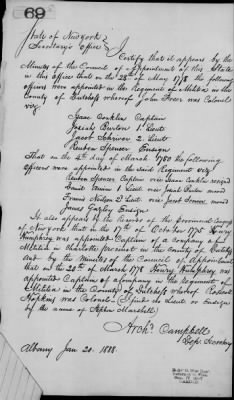 69
State of New York
Secretary's Office
I Certify that it appears by the
Minutes of the Council of appointment of this State
in this office that on the 28th of May 1778 the following
officers were appointed in the Regiment of Militia in the
County of Dutchess whereof John Freer was Colonel
viz
Isaac Conklin Captain
Josiah Burton 1. Lieut
Jacob Schriver 2. Lieut
Reuben Spencer Ensign
That on the 4th day of March 1780 the following
Officers were appointed in the said Regiment viz
Reuben Spencer Captain vice Isaac Conklin resigned
1 Lieut vice
Francis Nielson 2 Lieut vice Jacob
James Ensign
It also appears by the Records of the provincial Congress
of New York that on the 17th of October 1775 Henry
Humphrey was appointed Captain of a Company of
Militia in Charlotte precinct in the County of Dutchess
and by the minutes of the Council of Appointment
that on the 20th of March 1778 Henry Humphrey was
appointed Captain of a Company in the Regiment of
Militia in the County of Dutchess whereof Roswell
Hopkins was Colonel. I find no Lieut or Ensign
by the name of Marshall
Archd Campbell
Dep. Secretary
Albany Jan 20. 1838.